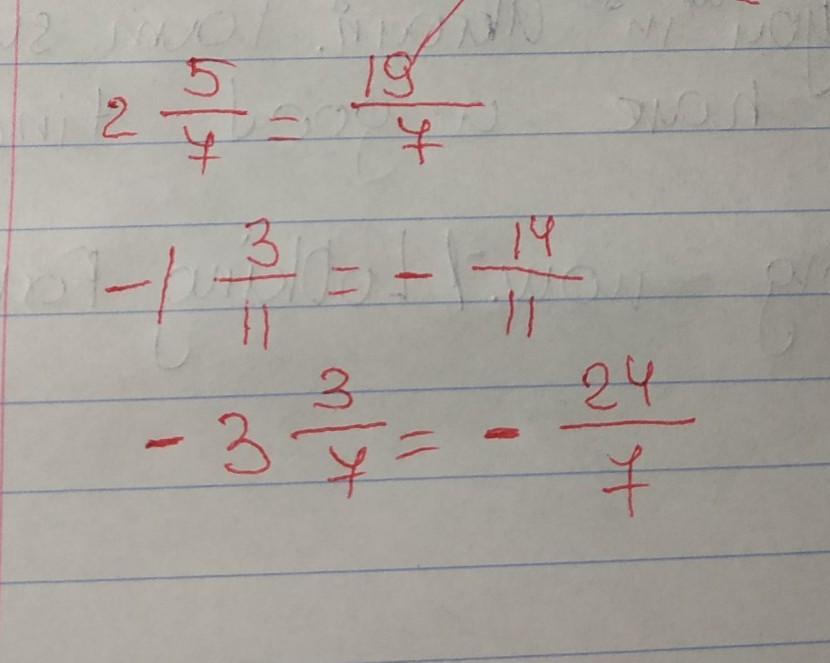 2 5/7 = 19/7
-1 3/11 = - 14/11
-3 3/7 = - 24/7